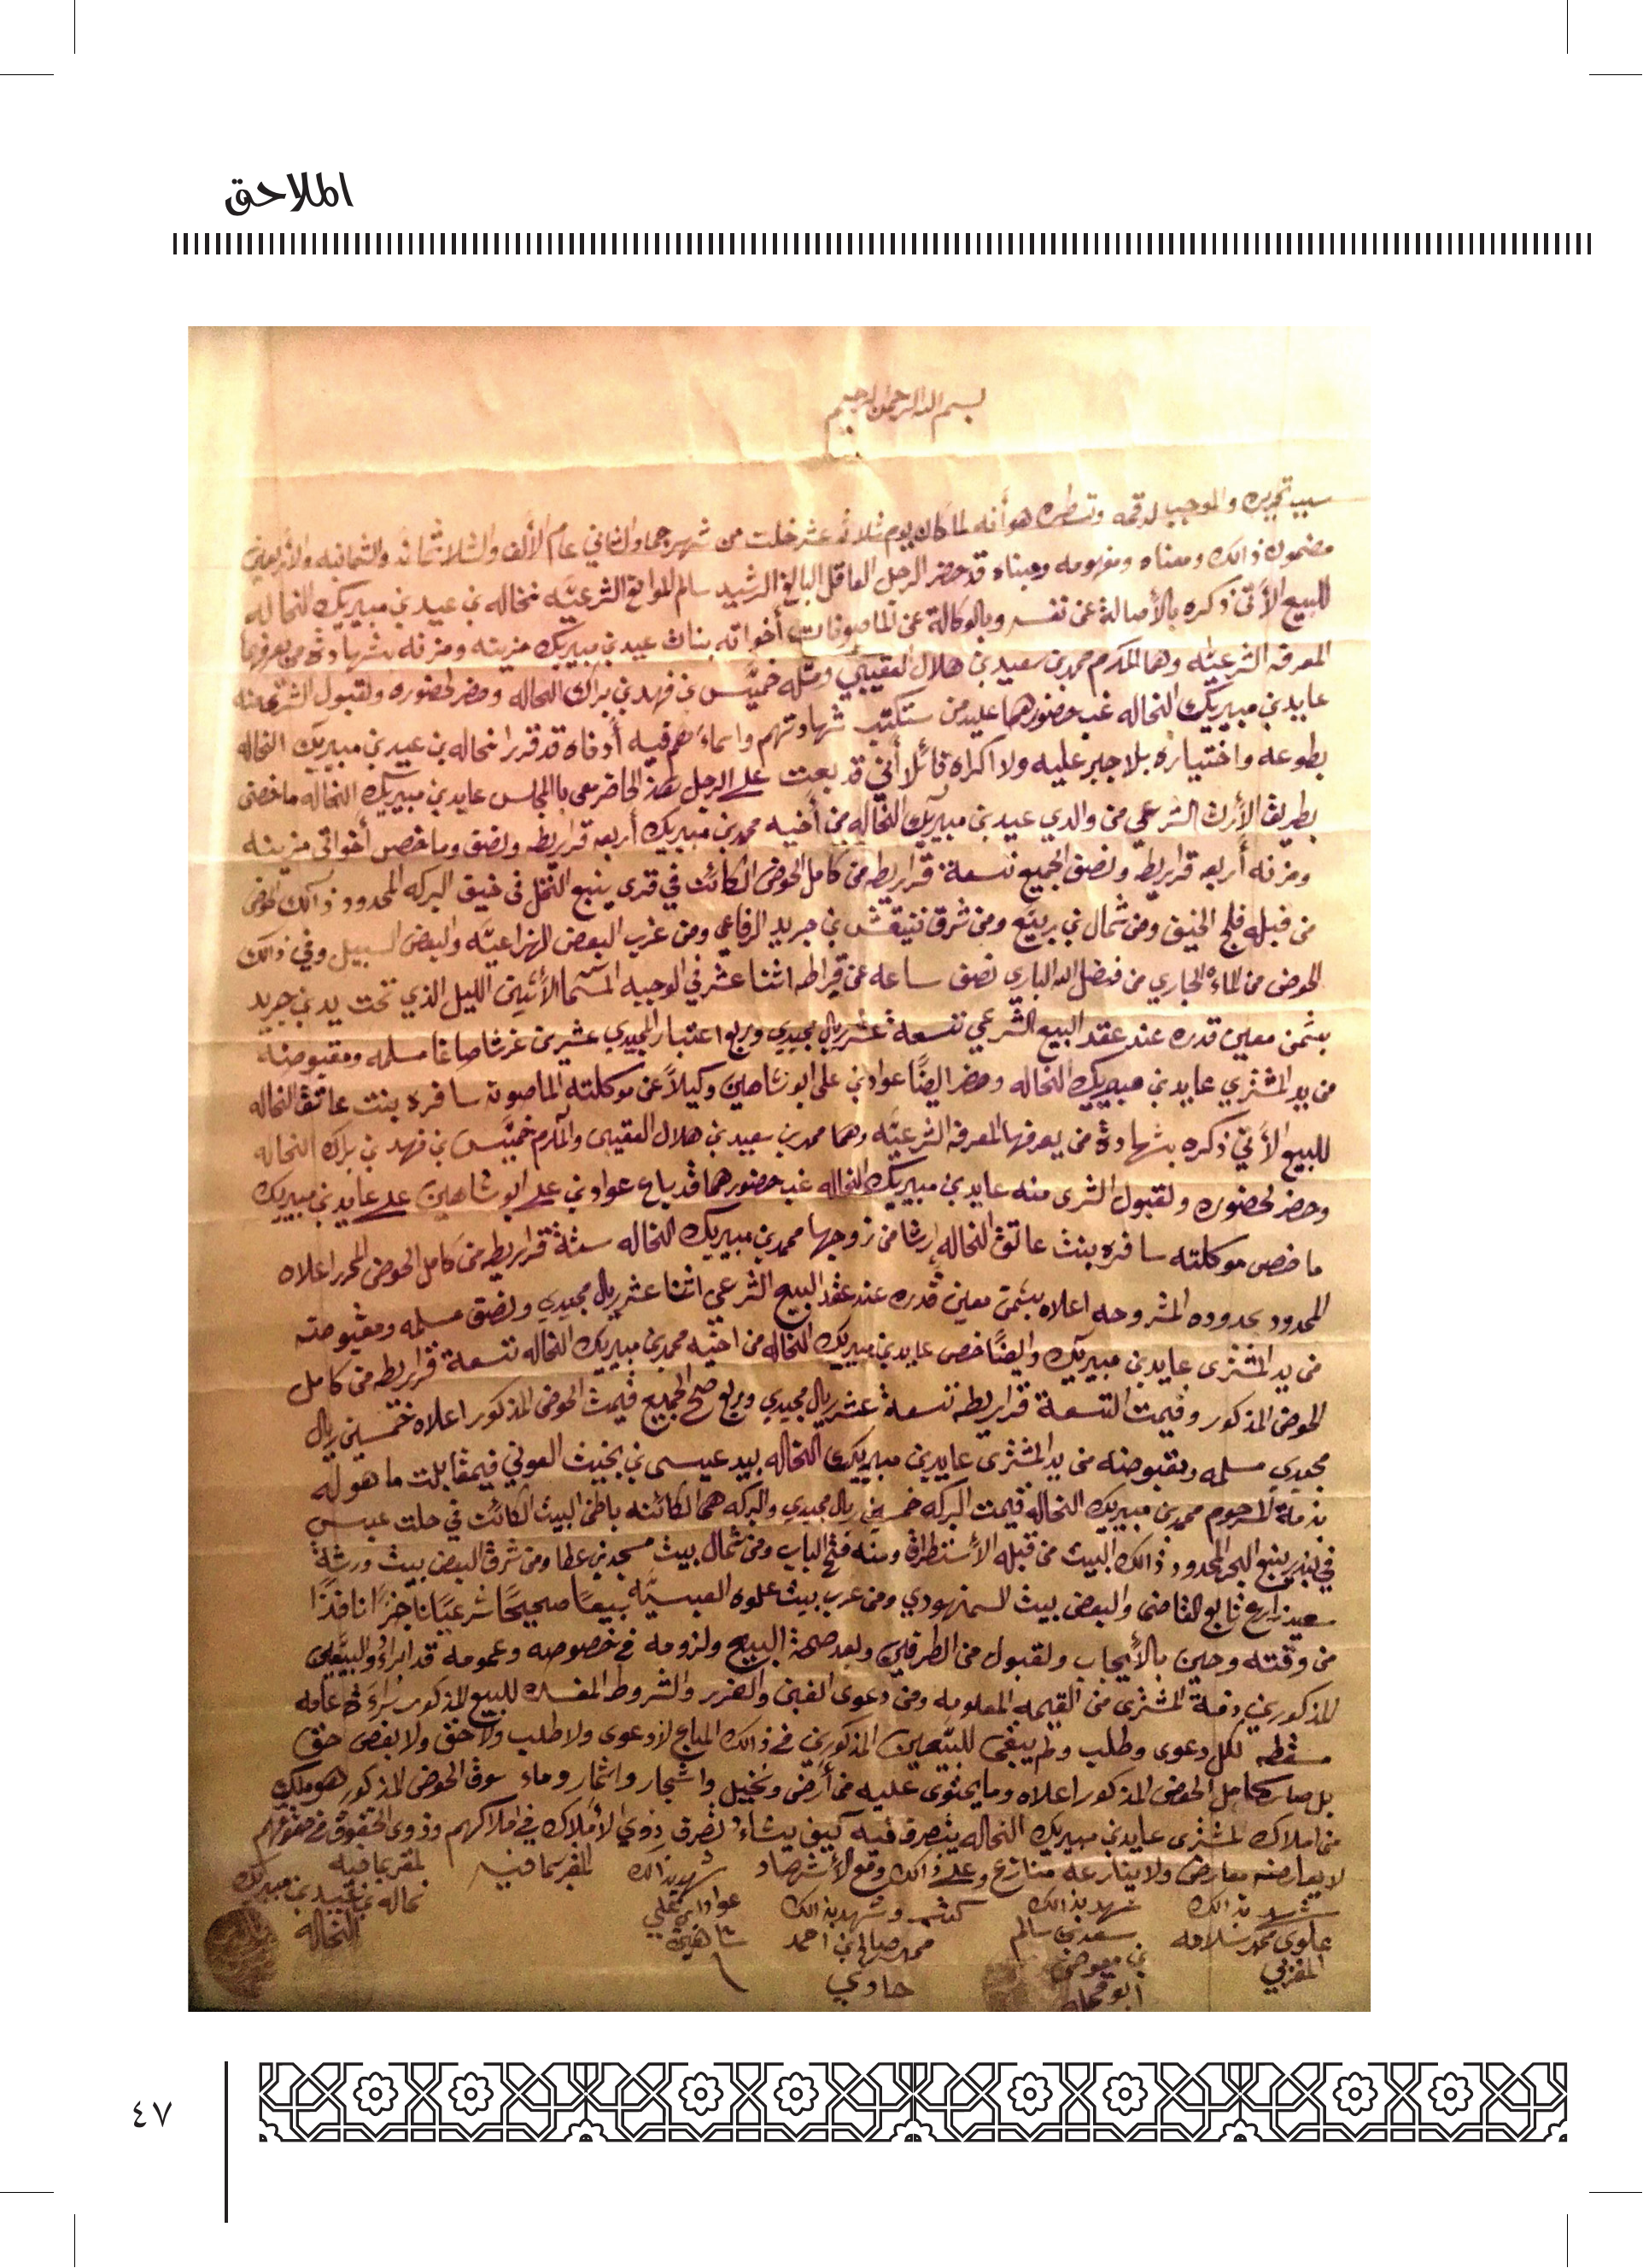 الملاحق
بسم الله الرحمن الرحيم
سبب تحريره والموجب لرقمه وتسطيره هو أنه لما كان يوم ثلاثة عشر خلت من شهر جماد الثاني عام الألف والثلاثمائه والثمانيه والأربعين
مضمون ذالك ومعناه ومفهومه ومبناه قد حضر الرجل العاقل البالغ الرشيد سالم الموانع الشرعيّه نخاله بن عيد بن مبيريك النخاله
للبيع الأتي ذكره بالأصالة عن نفسه وبالوكالة عن الماصونات أخواته بنات عيد بن مبيريك مزينه ومزنه بشهادة من يعرفهما
المعرفه الشرعيّه وهما المكرم محمد بن سعيد بن هلال العقيبي ومثله خميّس بن فهد بن براك النخاله وحضر لحضوره ولقبول الشرى منه
عايد بن مبيريك النخاله غب حضورهما عليد من ستكتب شهادتهم واسماءهم فيه أدناه قد قرر نخاله بن عيد بن مبيريك النخاله
بطوعه واختياره بلا جبر عليه ولا اكراه قائلاً أني قد بعت على الرجل هذا الحاضر معي بالمجلس عايد بن مبيريك النخاله ما خصني
بطريق الأرث الشرعي من والدي عيد بن مبيريك النخاله من أخيه محمد بن مبيريك أربعه قراريطه ونصف وما خصص أخواتي مزينه
ومزنه أربعه قراريطه ونصف الجميع تسعة قراريطه من كامل الحوض الكائن في قرى ينبع النخل في خيف البركه المحدود ذالك الحوض
من قبله فلج الخيف ومن شمال بن بريّع ومن شرق بن جريد الرفاعي ومن غرب البعض الهزاعيّه والبعض السبيل وفي ذالك
الحوض من الماء الجاري من فضل الله الباري نصف ساعه عن قيراطه اثنا عشر في الوجبه المسما الأثنين الليل الذي تحت يد بن جريد
بثمن معين قدره عند عقد البيع الشرعي تسعة عشر ريال مجيدي وربع اعتبار المجيدي عشرين غرشا صاغا مسلمه ومقبوضه
من يد المشتري عايد بن مبيريك النخاله وحضر ايضًا عواد بن علي ابو شاهين وكيلاً عن موكلته الماصونه سافره بنت عاتق النخاله
للبيع الأتي ذكره بشهادة من يعرفها المعرفه الشرعيّه وهما محمد بن سعيد بن هلال العقيبي والمكرم خميّس بن فهد بن براك النخاله
وحضر لحضوره ولقبول الشرى منه عايد بن مبيريك النخاله غب حضورهما قد باع عواد بن علي ابو شاهين على عايد بن مبيريك
ما خصص موكلته سافره بنت عاتق النخاله إرثا من زوجها محمد بن مبيريك النخاله ستة قراريطه من كامل الحوض المحرر اعلاه
المحدود بحدوده المشروحه اعلاه بثمن معين قدره عند عقد البيع الشرعي اثنا عشر ريال مجيدي ونصف مسلمه ومقبوضه
من يد المشترى عايد بن مبيريك وايضًا خص عايد بن مبيريك النخاله من اخيه محمد بن مبيريك النخاله تسعة قراريطه من كامل
الحوض المذكور وقيمت التسعة قراريطه تسعة عشر ريال مجيدي وربع صح الجميع قيمت الحوض المذكور اعلاه خمسين ريال
مجيدي مسلمه ومقبوضه من يد المشترى عايد بن مبيريك النخاله بيد عيسى بن بخيت العوني فيمقابلت ما هو له
بذمة المرحوم محمد بن مبيريك النخاله قيمت البركه خمسين ريال مجيدي والبركه هي الكائنه باطن البيت الكائن في حلت عبس
في بندر ينبع البحر المحدود ذالك البيت من قبله الأستطراق ومنه فتح الباب ومن شمال بيت مسجد بن عطا ومن شرق البعض بيت ورثة
سعيد تابع القاضي والبعض بيت السمنهودي ومن غرب بيت علوه العبسيّه بيعًا صحيحًا شرعيًا ناجزًا نافذًا
من وقته وحين بالأيجاب ولقبول من الطرفين وبعد صحة البيع ولزومه في خصوصه وعمومه قد ابراء البيّعين
المذكورين ذمة المشترى من القيمه المعلومه ومن دعوى الغبن والغرر والشروط المفسده للبيع المذكور براءة عامه
مسقطه لكل دعوى وطلب ولم يبقى للبيّعين المذكورين في ذالك المباع لا دعوى ولا طلب ولا حق ولا بعض حق
بل صار كامل الحوض المذكور اعلاه وما يحتوى عليه من أرض ونخيل واشجار واثمار وماء سوق الحوض المذكور هو ملك
من املاك المشترى عايد بن مبيريك النخاله يتصرف فيه كيف يشاء تصرف ذوي الأملاك في املاكهم وذوى الحقوق في حقوقهم
لا يعارضه معارض ولا ينازعه منازع وعلى ذالك وقع الأشهاد
شهد بذالك علوي محمد سلامه المغربي
شهد بذالك سعد بن سالم بن معوض
كتبه وشهد بذالك محمد صالح بن احمد حادي
شهد بذالك عواد بن علي شاهين
المقر بما فيه
المقر بما فيه نخاله بن عيد بن مبيريك النخاله
٤٧